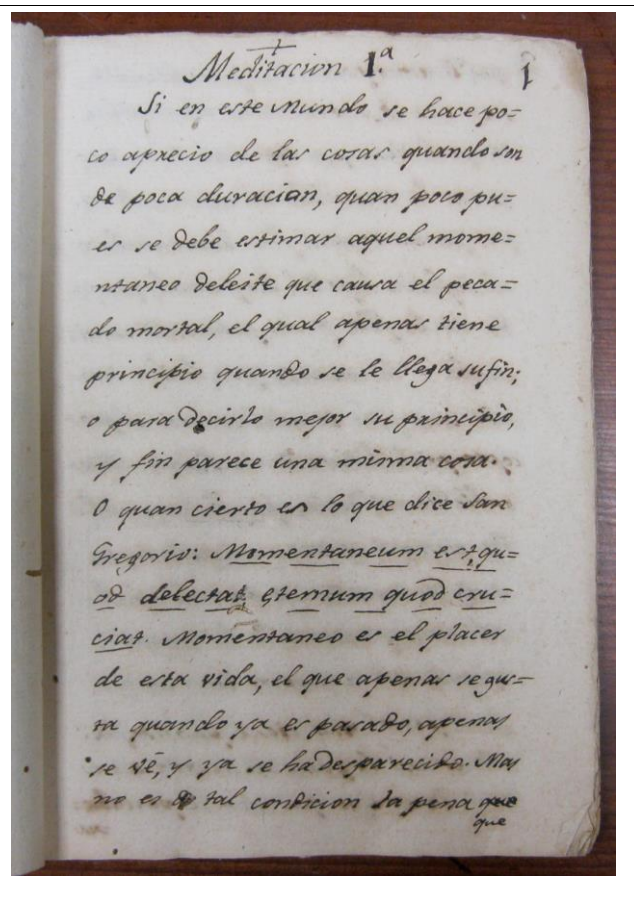 Meditacion 1.ª
1
Si en este Mundo se hace po=
co aprecio de las cosas quando son
de poca duracian, quan poco pu=
es se debe estimar aquel mome=
ntaneo deleite que causa el peca=
do mortal, el qual apenas tiene
principio quando se le llega su fin;
o para decirlo mejor su principio,
y fin parece una misma cosa.
O quan cierto es lo que dice San
Gregorio: Momentaneum est qu=
od delectat, ęternum quod cru=
ciat. Momentaneo es el placer
de esta vida, el que apenas se gus=
ta quando ya es pasado, apenas
se vé, y ya se ha desparecido. Mas
no es de tal condicion la pena que
que